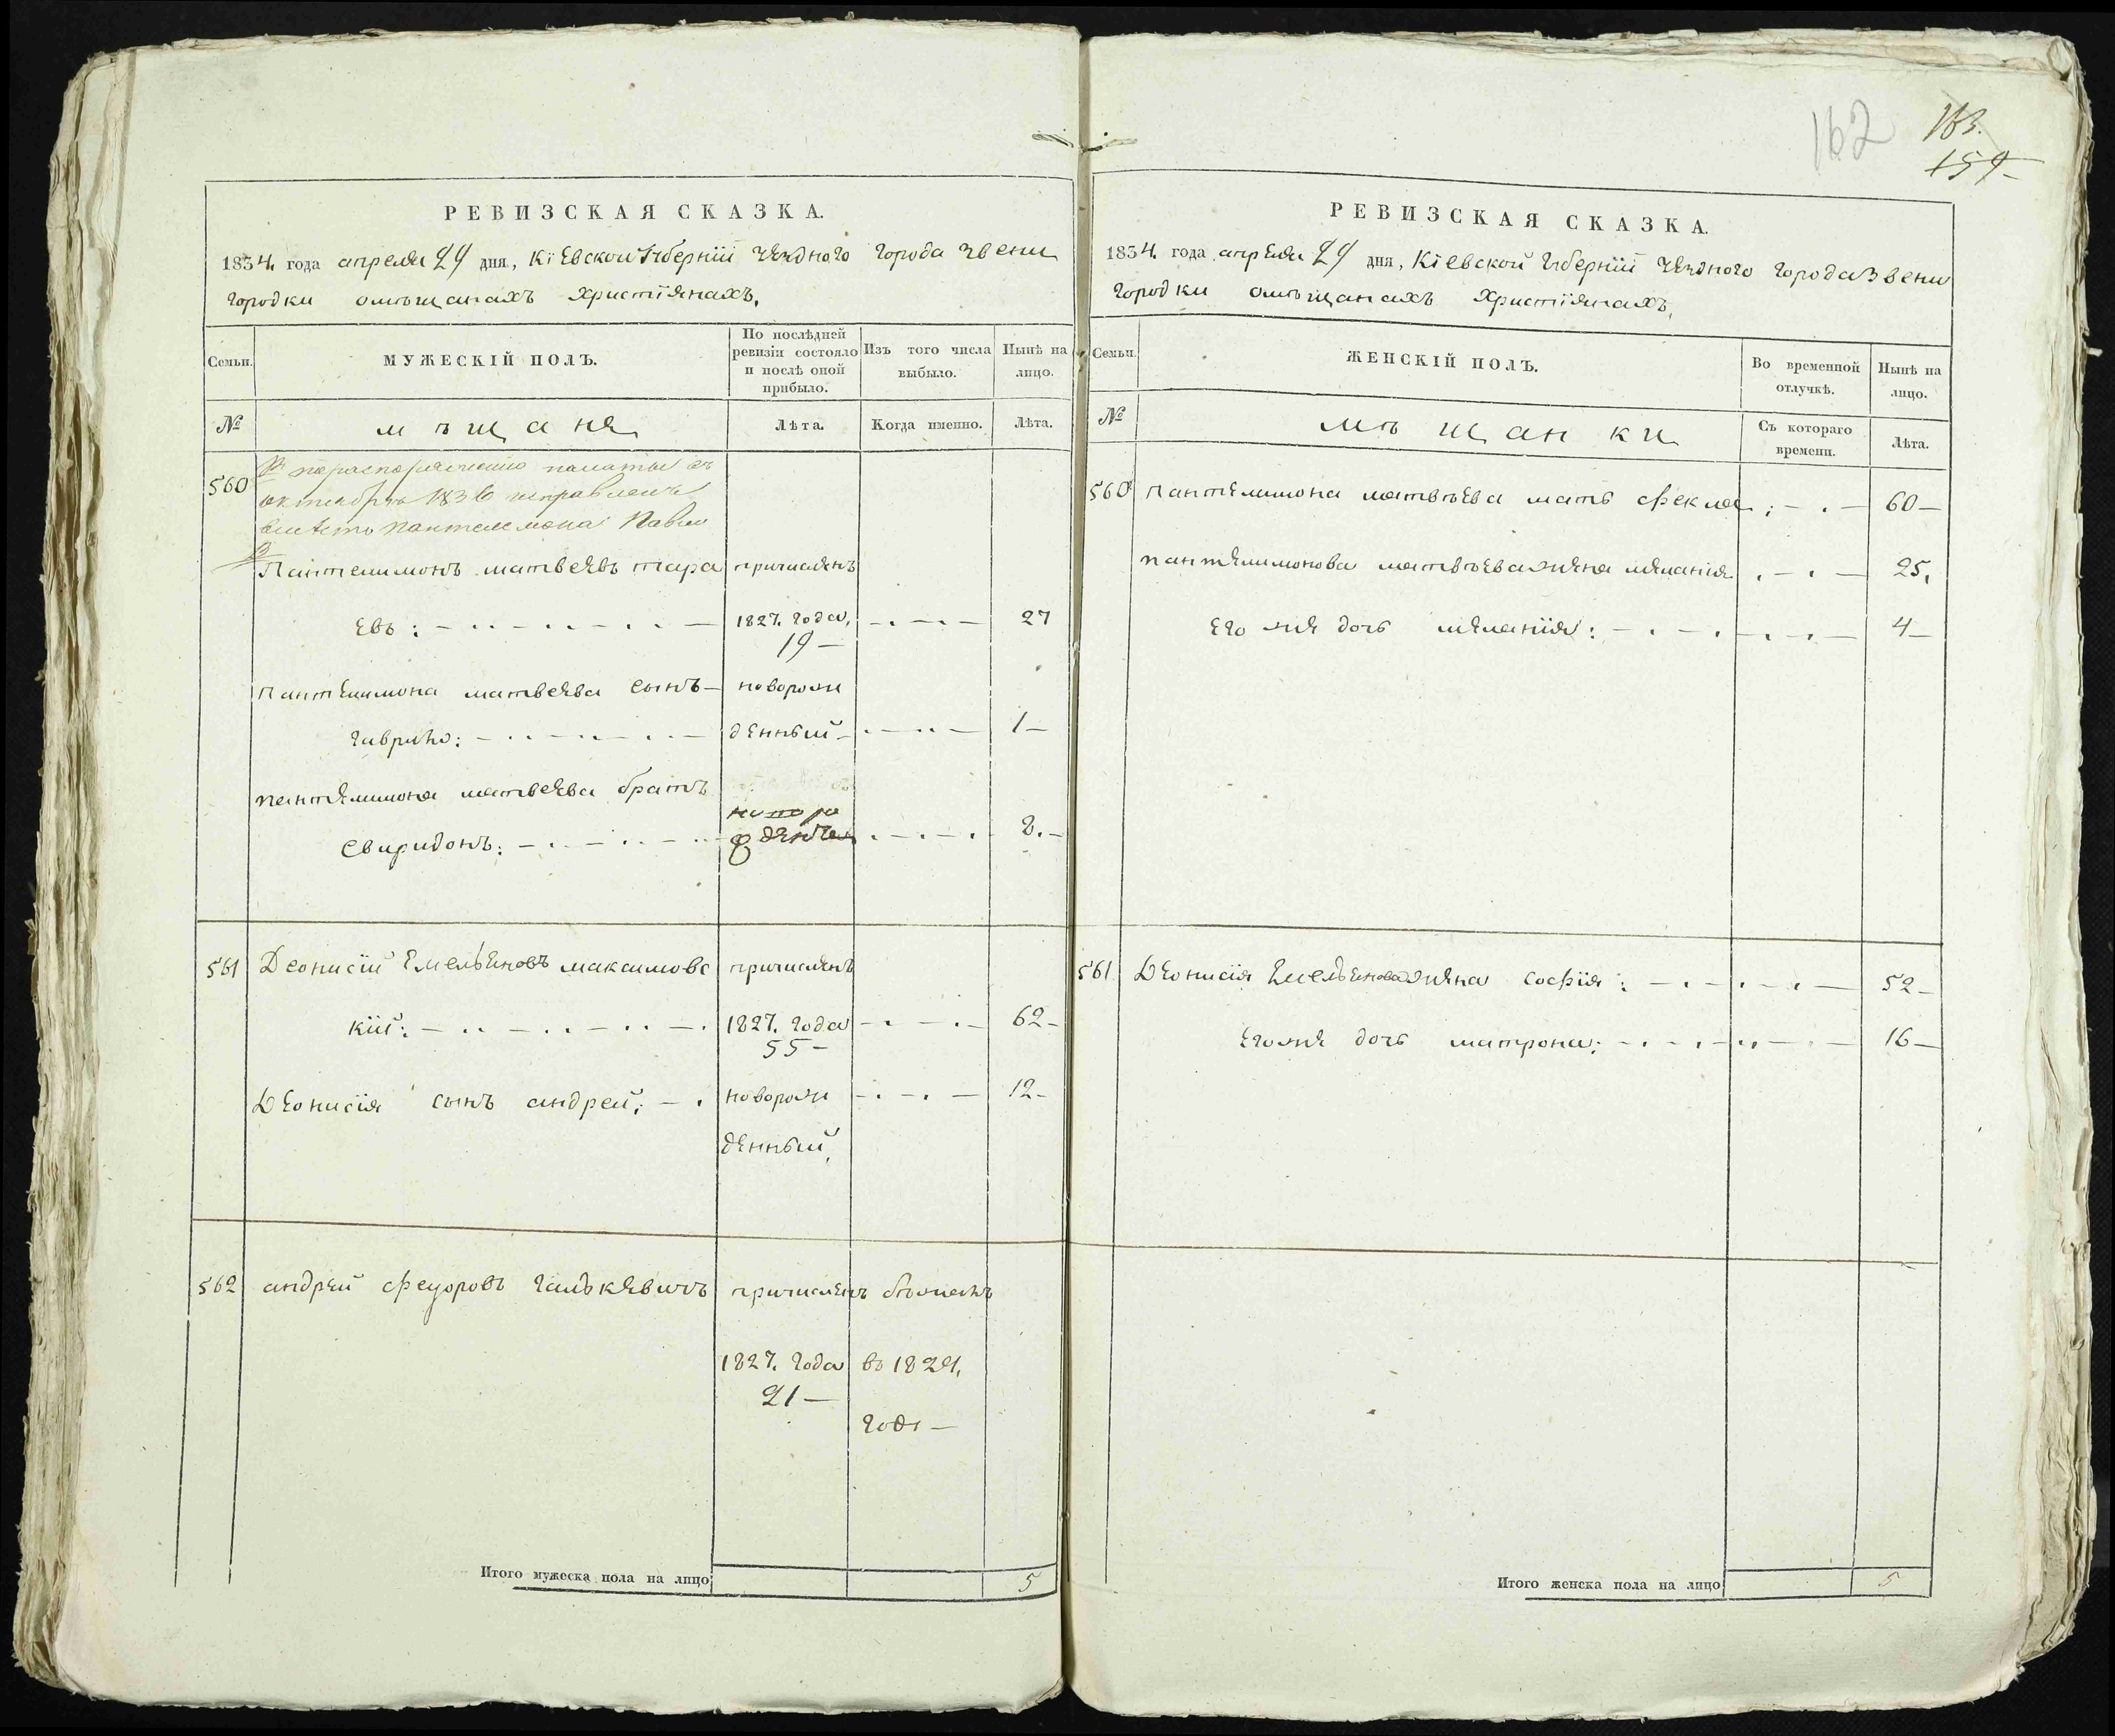 РЕВИЗСКАЯ СКАЗКА.
1834. года апреля 29 дня, Кіевской Губерніи уезднаго города Звени
городки омѣщанахъ христіянахъ.
Семьи.
МУЖЕСКІЙ ПОЛЪ.
По послѣдней
ревизіи состояло
и послѣ оной
прибыло.
Изъ того числа
выбыло.
Нынѣ на
лицо.
№
мѣщане
Лѣта.
Когда именно.
Лѣта.
560
по распоряжению палаты въ
октября 1836 исправлено
вместо Пантелемона Павло
Пантелимонъ матвеевъ тара
причисленъ
евъ:
1827. года,
27
19
пантелимона матвеева сынъ
новорож
гаврило:
денный
1
пантелимона матвеева братъ
Свиридонъ:
8
561
Деонисій Емельяновъ максимовс
причисленъ
кій:
1827. года
62
55
Деонисія сынъ андрей;
новорож
12
денный,
562
андрей Феуоровъ галькевичъ
причисленъ
1827. года
въ 1829.
21
годе
Итого мужеска пола на лицо
5
162
163.
159
РЕВИЗСКАЯ СКАЗКА.
1834. года апреля 29 дня, Кіевской Губерніи уезднаго города Звени
городки омѣщанахъ христіянахъ.
Семьи.
ЖЕНСКІЙ ПОЛЪ.
Во временной
отлучкѣ.
Нынѣ на
лицо.
№
мѣщанки
Съ котораго
времени.
Лѣта.
560
пантелимона матвѣева мать Фекла
60
пантелимонова матвѣева жена меланія
25.
его же дочь меланія:
4
561
Деонисія Емельянова жена софія:
52
его же дочь матрона:
16
Итого женска пола на лицо
5